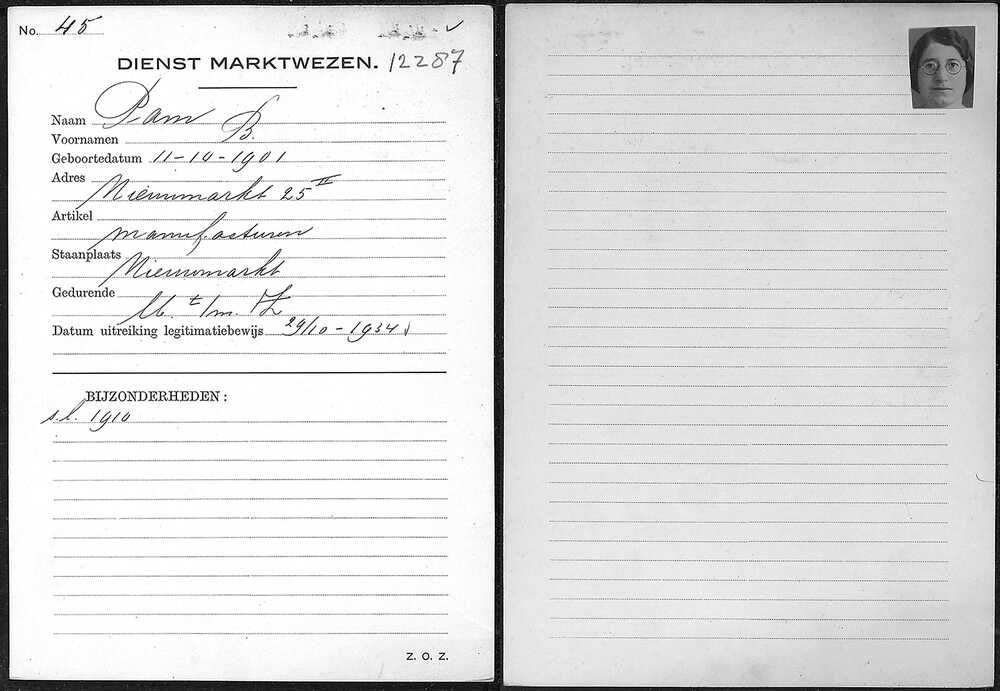 No. 45
DIENST MARKTWEZEN. 12287
Naam Pam
Voornamen B.
Geboortedatum 11-10-1901
Adres
Nieuwmarkt 25 II
Artikel
manufacturen
Staanplaats
Nieuwmarkt
Gedurende
M. t/m. Z
Datum uitreiking legitimatiebewijs 29/10-1934
BIJZONDERHEDEN:
s.l. 1910
Z. O. Z.